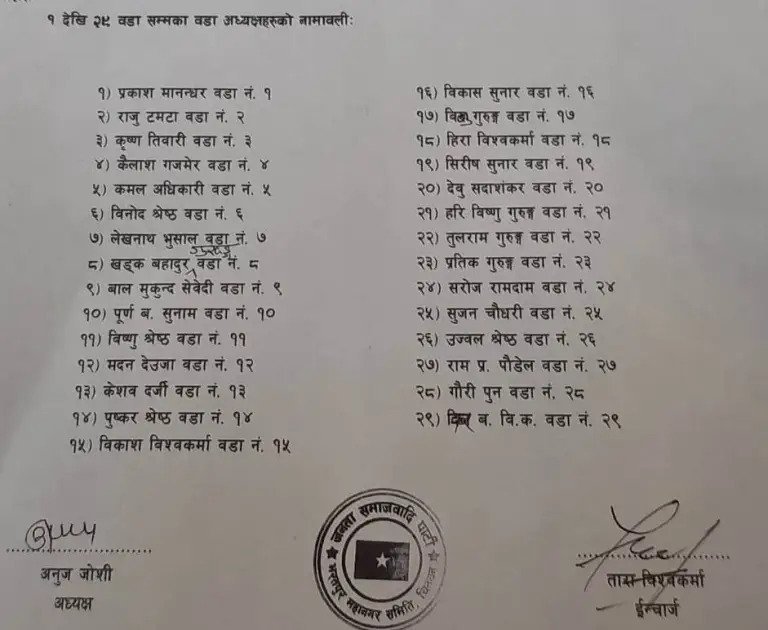 १ देखि २९ वडा सम्मका वडा अध्यक्षहरुको नामावली:
१) प्रकाश मानन्धर वडा नं. १
२) राजु टमटा वडा नं. २
३) कृष्ण तिवारी वडा नं. ३
४) कैलाश गजमेर वडा नं. ४
५) कमल अधिकारी वडा नं. ५
६) विनोद श्रेष्ठ वडा नं. ६
७) लेखनाथ भुसाल वडा नं. ७
८) खड्क बहादुर वडा नं. ८
९) बाल मुकुन्द सेवेदी वडा नं. ९
१०) पूर्ण ब. सुनाम वडा नं. १०
११) विष्णु श्रेष्ठ वडा नं. ११
१२) मदन देउजा वडा नं. १२
१३) केशव दर्जी वडा नं. १३
१४) पुष्कर श्रेष्ठ वडा नं. १४
१५) विकाश विश्वकर्मा वडा नं. १५
१६) विकास सुनार वडा नं. १६
१७) गुरुङ्ग वडा नं. १७
१८) हिरा विश्वकर्मा वडा नं. १८
१९) सिरीष सुनार वडा नं. १९
२०) देवु सदाशंकर वडा नं. २०
२१) हरि विष्णु गुरुङ्ग वडा नं. २१
२२) तुलराम गुरुङ्ग वडा नं. २२
२३) प्रतिक गुरुङ्ग वडा नं. २३
२४) सरोज रामदाम वडा नं. २४
२५) सुजन चौधरी वडा नं. २५
२६) उज्वल श्रेष्ठ वडा नं. २६
२७) राम प्र. पौडेल वडा नं. २७
२८) गौरी पुन वडा नं. २८
२९) ब. वि.क. वडा नं. २९
जनता समाजवादि पार्टी
भरतपुर महानगर समिति, चितवन
अनुज जोशी
अध्यक्ष
विश्वकर्मा
ईन्चार्ज